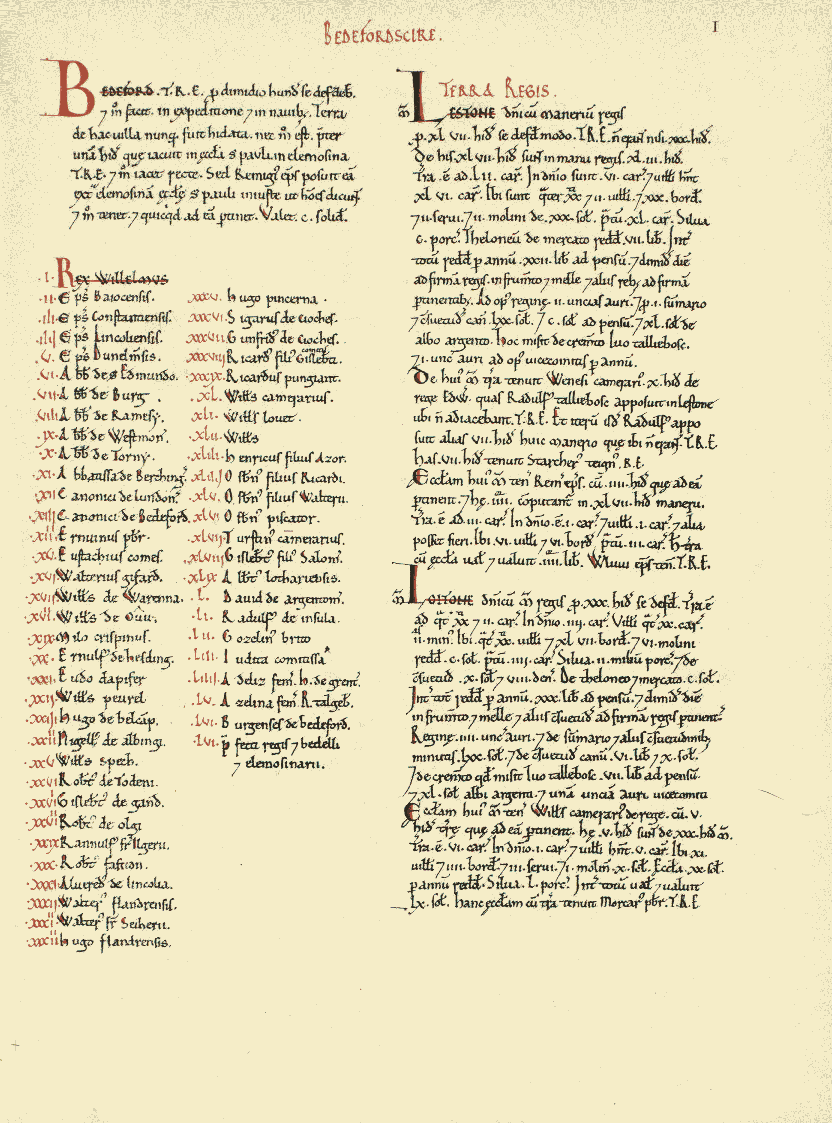 BEDEFORDSCIRE.
I
BEDEFORD. T.R.E. ꝑ dimidio hund se defdeb.
⁊ m̄ facit. in expeditione ⁊ in nauib;. Terra
de hac uilla nunq̄. fuit hidata. nec m̄ est. p̄ter
unā hid̄ que iacuit in ęccl̄a S pauli in elemosina
T.R.E. ⁊ m̄ iacet recte. Sed Remigi᷒ ep̄s posuit eā
ext̄ elemosinā ęccl̄ę S pauli iniuste ut hōēs dicunt.
⁊ m̄ tenet. ⁊ quicq̇d ad eā ꝑtinet. Valet. c. solid̄.
.I. REX WILLELMVS
.II. Ep̄s Baiocensis.
.III. Ep̄s Constantiensis.
.IIII. Ep̄s Lincoliensis.
.V. Ep̄s Dunelm̄sis.
.VI. Abb̄ de S Edmundo.
.VII. Abb̄ de Burg.
.VIII. Abb̄ de Ramesy.
.IX. Abb̄ de Westmon̄.
.X. Abb̄ de Torny.
.XI. Abbatissa de Berchinḡ.
.XII. Canonici de Lundon̄.
.XIII. Canonici de Bedeford.
.XIIII. Ernuinus pb̄r.
.XV. Eustachius comes.
.XVI. Walterius gifard.
.XVII. Witts de Warenna.
.XVIII. Witts de Ou.
.XIX. Milo crispinus.
.XX. Ernulf᷒ de hesding.
.XXI. Eudo dapifer
.XXII. Witts peurel
.XXIII. Hugo de belcāp.
.XXIIII. Nigell᷒ de albingi.
.XXV. Witts spech.
.XXVI. Robt᷒ de Todeni.
.XXVII. Gislebt᷒ de gand.
.XXVIII. Robt᷒ de olgi
.XXIX. Rannulf᷒ fr̄ Ilgerii.
.XXX. Robt᷒ fafiton.
.XXXI. Aluered᷒ de lincolia.
.XXXII. Walter᷒ flandrensis.
.XXXIII. Walter᷒ fr̄ Seiherii.
.XXXIIII. Hugo flandrensis.
.XXXV. Hugo pincerna.
.XXXVI. Sigarus de cioches.
.XXXVII. Gunfrid᷒ de cioches.
.XXXVIII. Ricard᷒ fili᷒ Gislebti comitis.
.XXXIX. Ricardus pungiant.
.XL. Witts camerarius.
.XLI. Witts louet.
.XLII. Witts
.XLIII. Henricus filius Azor.
.XLIIII. Osbn᷒ filius Ricardi.
.XLV. Osbn᷒ filius Walterii.
.XLVI. Osbn᷒ piscator.
.XLVII. Turstin᷒ camerarius.
.XLVIII. Gislebt᷒ fili᷒ Salom̄.
.XLIX. Albt᷒ lothariensis.
.L. Dauid de argentom̄.
.LI. Radulf᷒ de insula.
.LII. Gozelin᷒ brito
.LIII. Iudita comitissa
.LIIII. Adeliz fem̄. H. de grent.
.LV. Azelina fem̄ R. talgeb̄.
.LVI. Burgenses de bedeford.
.LVII. p̄fecti regis ⁊ bedelli
⁊ elemosinarii.
TERRA REGIS.
m̄ LESTONE dn̄icū maneriū regis
.ꝑ. xlvii. hid̄ se defd̄ modo. T.R.E. n̄ erant nisi. xxx. hid̄.
De his. xlvii. hid̄ sunt in manu regis. xliii. hid̄.
Tr̄a. ē ad. lii. car̄. In dn̄io sunt. vi. car̄. ⁊ uitti hn̄t
xlvi. car̄. Ibi sunt q̇ter xx ⁊ ii. uitti. ⁊ xxx. bord̄.
⁊ ii. serui. ⁊ ii. molini de. xxx. sol̄. p̄tū. xl. car̄. Silua
c. porc̄. Theloneū de mercato redd̄. vii. lib̄. Int̄
totū redd̄ ꝑ annū. xxii. lib̄ ad pensū. ⁊ dimid̄ diē
ad firmā regis. in frum̄to ⁊ melle ⁊ aliis reb; ad firmā
ꝑtinentib;. Ad op᷒ reginę. ii. uncias auri. ⁊ ꝑ. i. sūmario
⁊ c̄suetud̄ can̄. lxx. sol̄. ⁊ c. sol̄ ad pensū. ⁊ xl. sol̄ de
albo argento. hoc misit de crem̄to Iuo talliebosc.
⁊ i. unc̄ auri ad op᷒ uicecomitis ꝑ annū.
De hui᷒ m̄ tr̄a tenuit Wenesi camerari᷒. x. hid̄ de
rege Edw. quas Radulf᷒ talliebosc apposuit in Lestone
ubi n̄ adiacebant. T.R.E. Et iterū isd̄ Radulf᷒ appo
suit alias vii. hid̄ huic manerio que ibi n̄ erant. T.R.E.
Has. vii. hid̄ tenuit Starcher᷒ teign᷒. R.E.
Eccl̄am hui᷒ m̄ ten᷒ Remi᷒ ep̄s. cū. iiii. hid̄ que ad eā
ꝑtinent. ⁊ hę. iiii. cōputant᷒ in. xlvii. hid̄ manerii.
Tr̄a. ē ad. iiii. car̄. In dn̄io. ē. i. car̄. ⁊ uitti. i. car̄. ⁊ alia
posset fieri. Ibi. vi. uitti ⁊ vi. bord̄. p̄tū. iii. car̄. H tr̄a
cū ęccl̄a ual̄ ⁊ ualuit. iiii. lib̄. Wluui ep̄s ten᷒. T.R.E.
m̄ LOITONE dn̄icū m̄ regis ꝑ. xxx. hid̄ se defd̄. Tr̄a ē
ad q̇t xx ⁊ ii. car̄. In dn̄io. iiii. car̄. Villi q̇t xx. car̄.
ii. min᷒. Ibi. q̇t xx. uitti ⁊ xlvii. bord̄. ⁊ vi. molini
redd̄. c. sol̄. p̄tū. iiii. car̄. Silua. ii. milib; porc̄. ⁊ de
c̄suetud̄. x. sol̄ ⁊ viii. den̄. De theloneo ⁊ mercato. c. sol̄.
Int̄ tot̄ redd̄ ꝑ annū. xxx. lib̄ ad pensū. ⁊ dimid̄ diē
in frum̄to ⁊ melle ⁊ aliis c̄suetud̄ ad firmā regis ꝑtinent᷒.
Reginę. iiii. unc̄ auri. ⁊ de sūmario ⁊ aliis c̄suetudinib;
minutis. lxx. sol̄. ⁊ de c̄suetud̄ canū. vi. lib̄ ⁊ x. sol̄.
⁊ de crem̄to qd̄ misit Iuo tallebosc. vii. lib̄ ad pensū.
⁊ xl. sol̄ albi argenti. ⁊ unā unciā auri uicecomiti
Eccl̄am hui᷒ m̄ ten᷒ Witts camerari᷒ de rege. cū. v.
hid̄ tr̄ę que ad eā ꝑtinent. hę. v. hid̄ sunt de xxx. hid̄ m̄.
Tr̄a. ē. vi. car̄. In dn̄io. i. car̄. ⁊ uitti hn̄t. v. car̄. Ibi xi.
uitti ⁊ iiii. bord̄. ⁊ iii. serui. ⁊ i. molin̄. x. sol̄. Eccl̄a. xx. sol̄.
ꝑ annū redd̄. Silua. l. porc̄. Int̄ totū ual̄ ⁊ ualuit
lx. sol̄. Hanc ęccl̄am cū tr̄a tenuit Morcar᷒ pb̄r. T.R.E